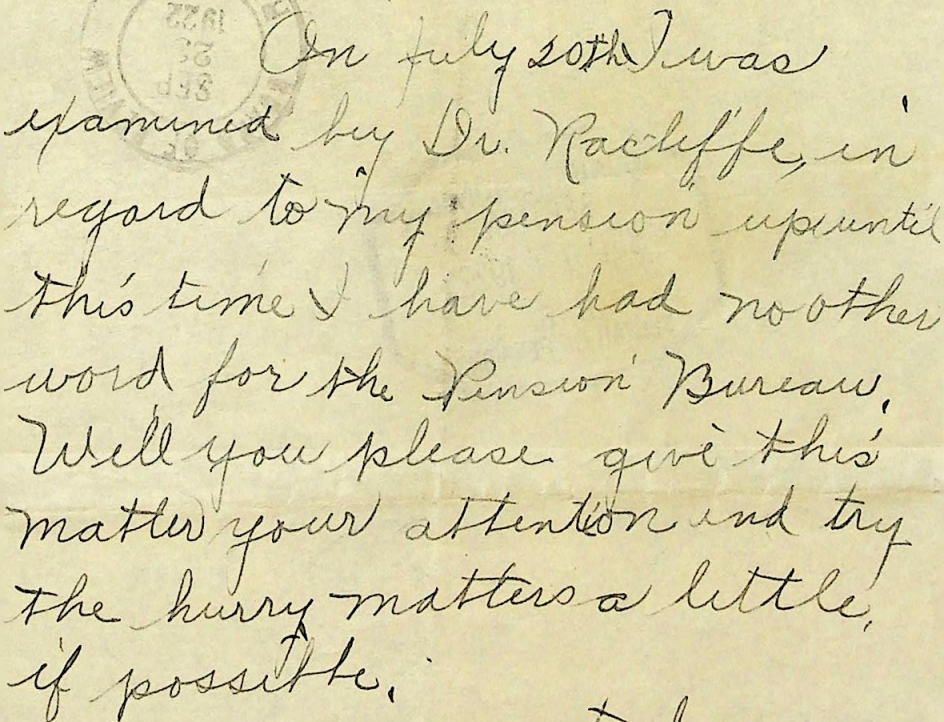 On July 20th I was
examined by Dr. Racliffe, in
regard to my pension up until
this time I have had no other
word for the Pension Bureau.
Will you please give this
matter your attention and try
the hurry matters a little,
if possible.
SEP
23
1922